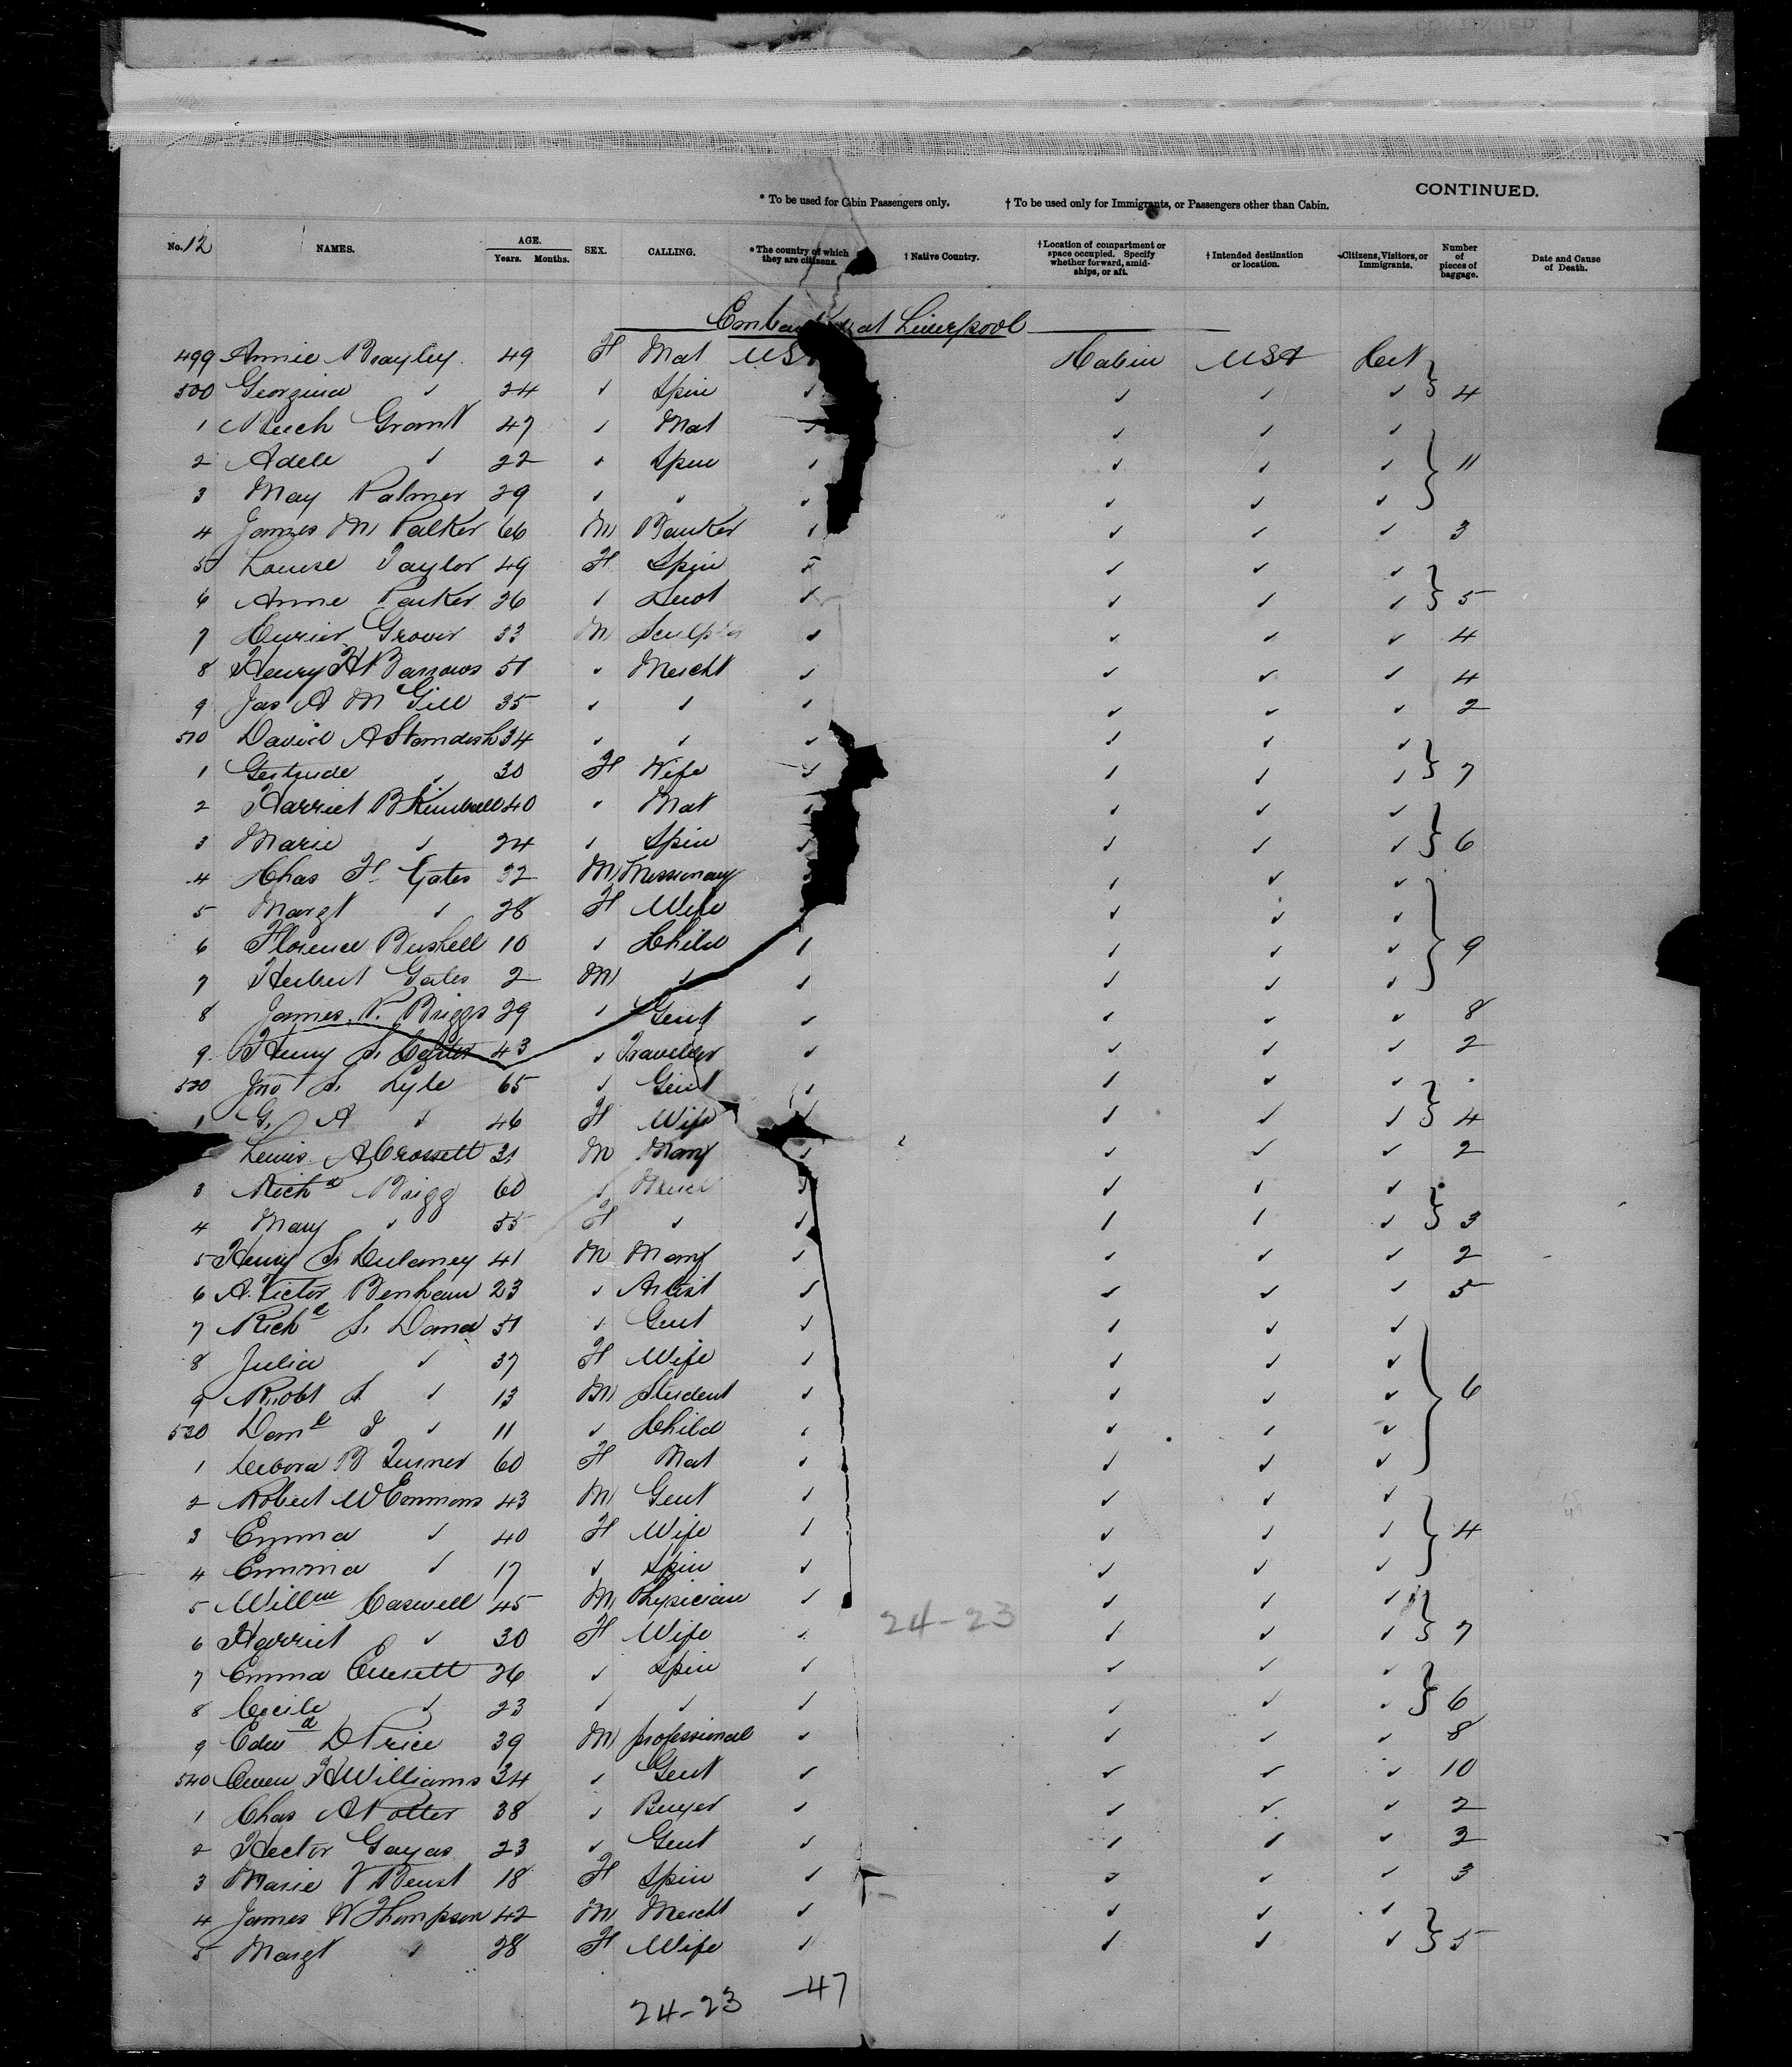 CONTINUED.
* To be used for Cabin Passengers only. † To be used only for Immigrants, or Passengers other than Cabin.
No. 12 NAMES. AGE. Years. Months. SEX. CALLING. * The country of which they are citizens. † Native Country. † Location of compartment or space occupied. Specify whether forward, amidships, or aft. † Intended destination or location. Citizens, Visitors, or Immigrants. Number of pieces of baggage. Date and Cause of Death.
at Liverpool
499 Annie Bayley 49 F Mat US Cabin USA
500 Georgina ✓ 24 ✓ Spin ✓ ✓ ✓ ✓ 4
1 Grant 47 ✓ Mat ✓ ✓ ✓ ✓
2 Adele ✓ 22 ✓ Spin ✓ ✓ ✓ ✓ 11
3 May Palmer 29 ✓ ✓ ✓ ✓ ✓ ✓
4 James M 66 M Banker ✓ ✓ ✓ ✓ 3
5 Louise Taylor 49 F Spin ✓ ✓ ✓
6 Anne Parker 26 ✓ ✓ ✓ ✓ ✓ 5
7 Grover 33 M ✓ ✓ ✓ ✓ 4
8 Henry H Barrows 51 ✓ Mercht ✓ ✓ ✓ ✓ 4
9 Jas A McGill 35 ✓ ✓ ✓ ✓ ✓ ✓ 2
510 David A Standish 34 ✓ ✓ ✓ ✓ ✓ ✓
1 Gertrude ✓ 30 F Wife ✓ ✓ ✓ ✓ 7
2 Harriet B Kimball 40 ✓ Mat ✓ ✓ ✓ ✓
3 Marie ✓ 24 ✓ Spin ✓ ✓ ✓ ✓ 6
4 Chas F Gates 32 M Missionary ✓ ✓ ✓
5 Margt ✓ 28 F Wife ✓ ✓ ✓
6 Florence Bushell 10 ✓ Child ✓ ✓ ✓ ✓ 9
7 Herbert Gates 2 M ✓ ✓ ✓ ✓ ✓
8 James P. Briggs 29 ✓ Gent ✓ ✓ ✓ ✓ 8
9 Henry S. Carter 43 ✓ Traveller ✓ ✓ ✓ ✓ 2
520 Jno S. Lyle 65 ✓ Gent ✓ ✓ ✓ ✓
1 G. A ✓ 46 F Wife ✓ ✓ ✓ ✓ 4
Lewis A Crossett 31 M Manf ✓ ✓ ✓ ✓ 2
3 Richd Brigg 60 ✓ ✓ ✓ ✓ ✓
4 Mary ✓ 55 F ✓ ✓ ✓ ✓ ✓ 3
5 Henry S. Dulaney 41 M Manf ✓ ✓ ✓ ✓ 2
6 A. Victor Benham 23 ✓ Artist ✓ ✓ ✓ ✓ 5
7 Richd S. Dana 51 ✓ Gent ✓ ✓ ✓ ✓
8 Julia ✓ 37 F Wife ✓ ✓ ✓ ✓
9 Richd S ✓ 13 M Student ✓ ✓ ✓ ✓ 6
530 Danl ✓ 11 ✓ Child ✓ ✓ ✓ ✓
1 Debora B Turner 60 F Mat ✓ ✓ ✓ ✓
2 Robert W Emmons 43 M Gent ✓ ✓ ✓ ✓
3 Emma ✓ 40 F Wife ✓ ✓ ✓ ✓ 4
4 Emma ✓ 17 ✓ Spin ✓ ✓ ✓ ✓
5 Willm Caswell 45 M Physician ✓ ✓ ✓ ✓
24-23
6 Harriet ✓ 30 F Wife ✓ ✓ ✓ ✓ 7
7 Emma Everett 26 ✓ Spin ✓ ✓ ✓ ✓
8 Cecile ✓ 23 ✓ ✓ ✓ ✓ ✓ ✓ 6
9 Edwd D Price 39 M professional ✓ ✓ ✓ ✓ 8
540 Owen F Williams 34 ✓ Gent ✓ ✓ ✓ ✓ 10
1 Chas A Potter 38 ✓ Buyer ✓ ✓ ✓ ✓ 2
2 Hector Gayas 23 ✓ Gent ✓ ✓ ✓ ✓ 2
3 Marie V Beust 18 F Spin ✓ ✓ ✓ ✓ 3
4 James W Thompson 42 M Mercht ✓ ✓ ✓ ✓
5 Margt ✓ 28 F Wife ✓ ✓ ✓ ✓ 5
24-23 -47